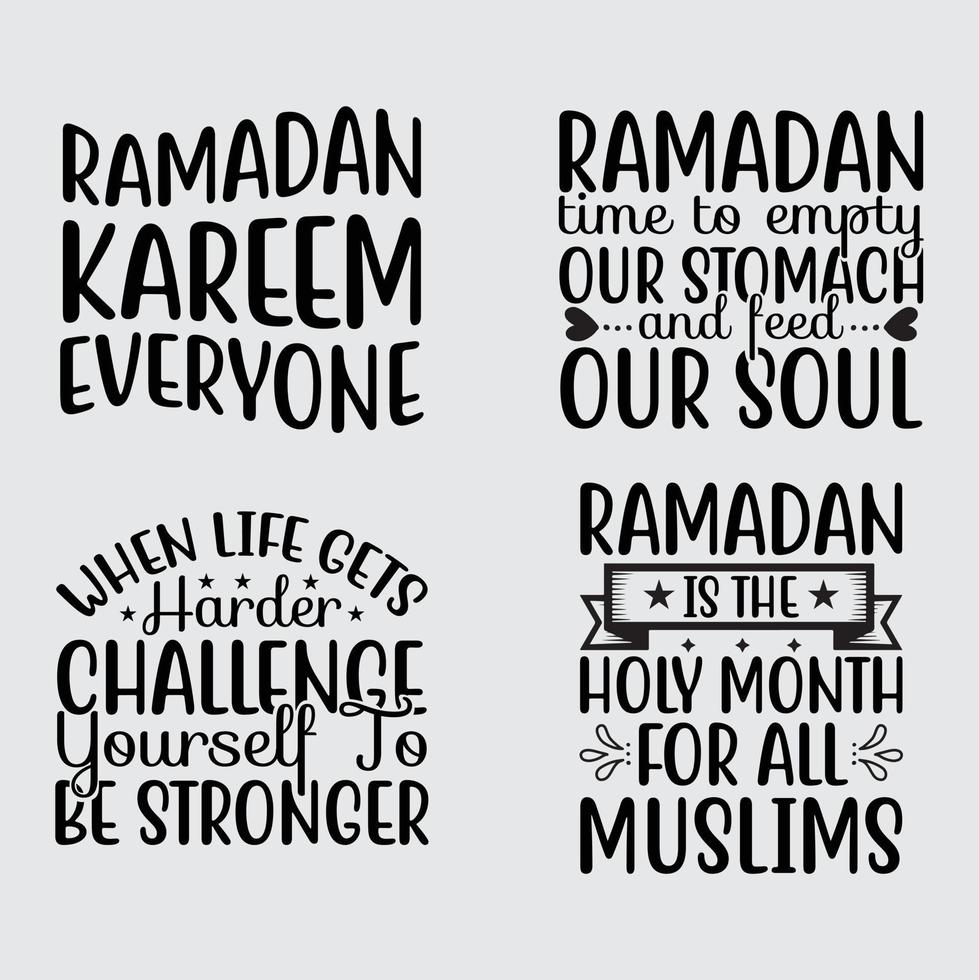 RAMADAN
KAREEM
EVERYONE
RAMADAN
time to empty
OUR STOMACH
and feed
OUR SOUL
WHEN LIFE GETS
Harder
CHALLENGE
Yourself To
BE STRONGER
RAMADAN
IS THE
HOLY MONTH
FOR ALL
MUSLIMS